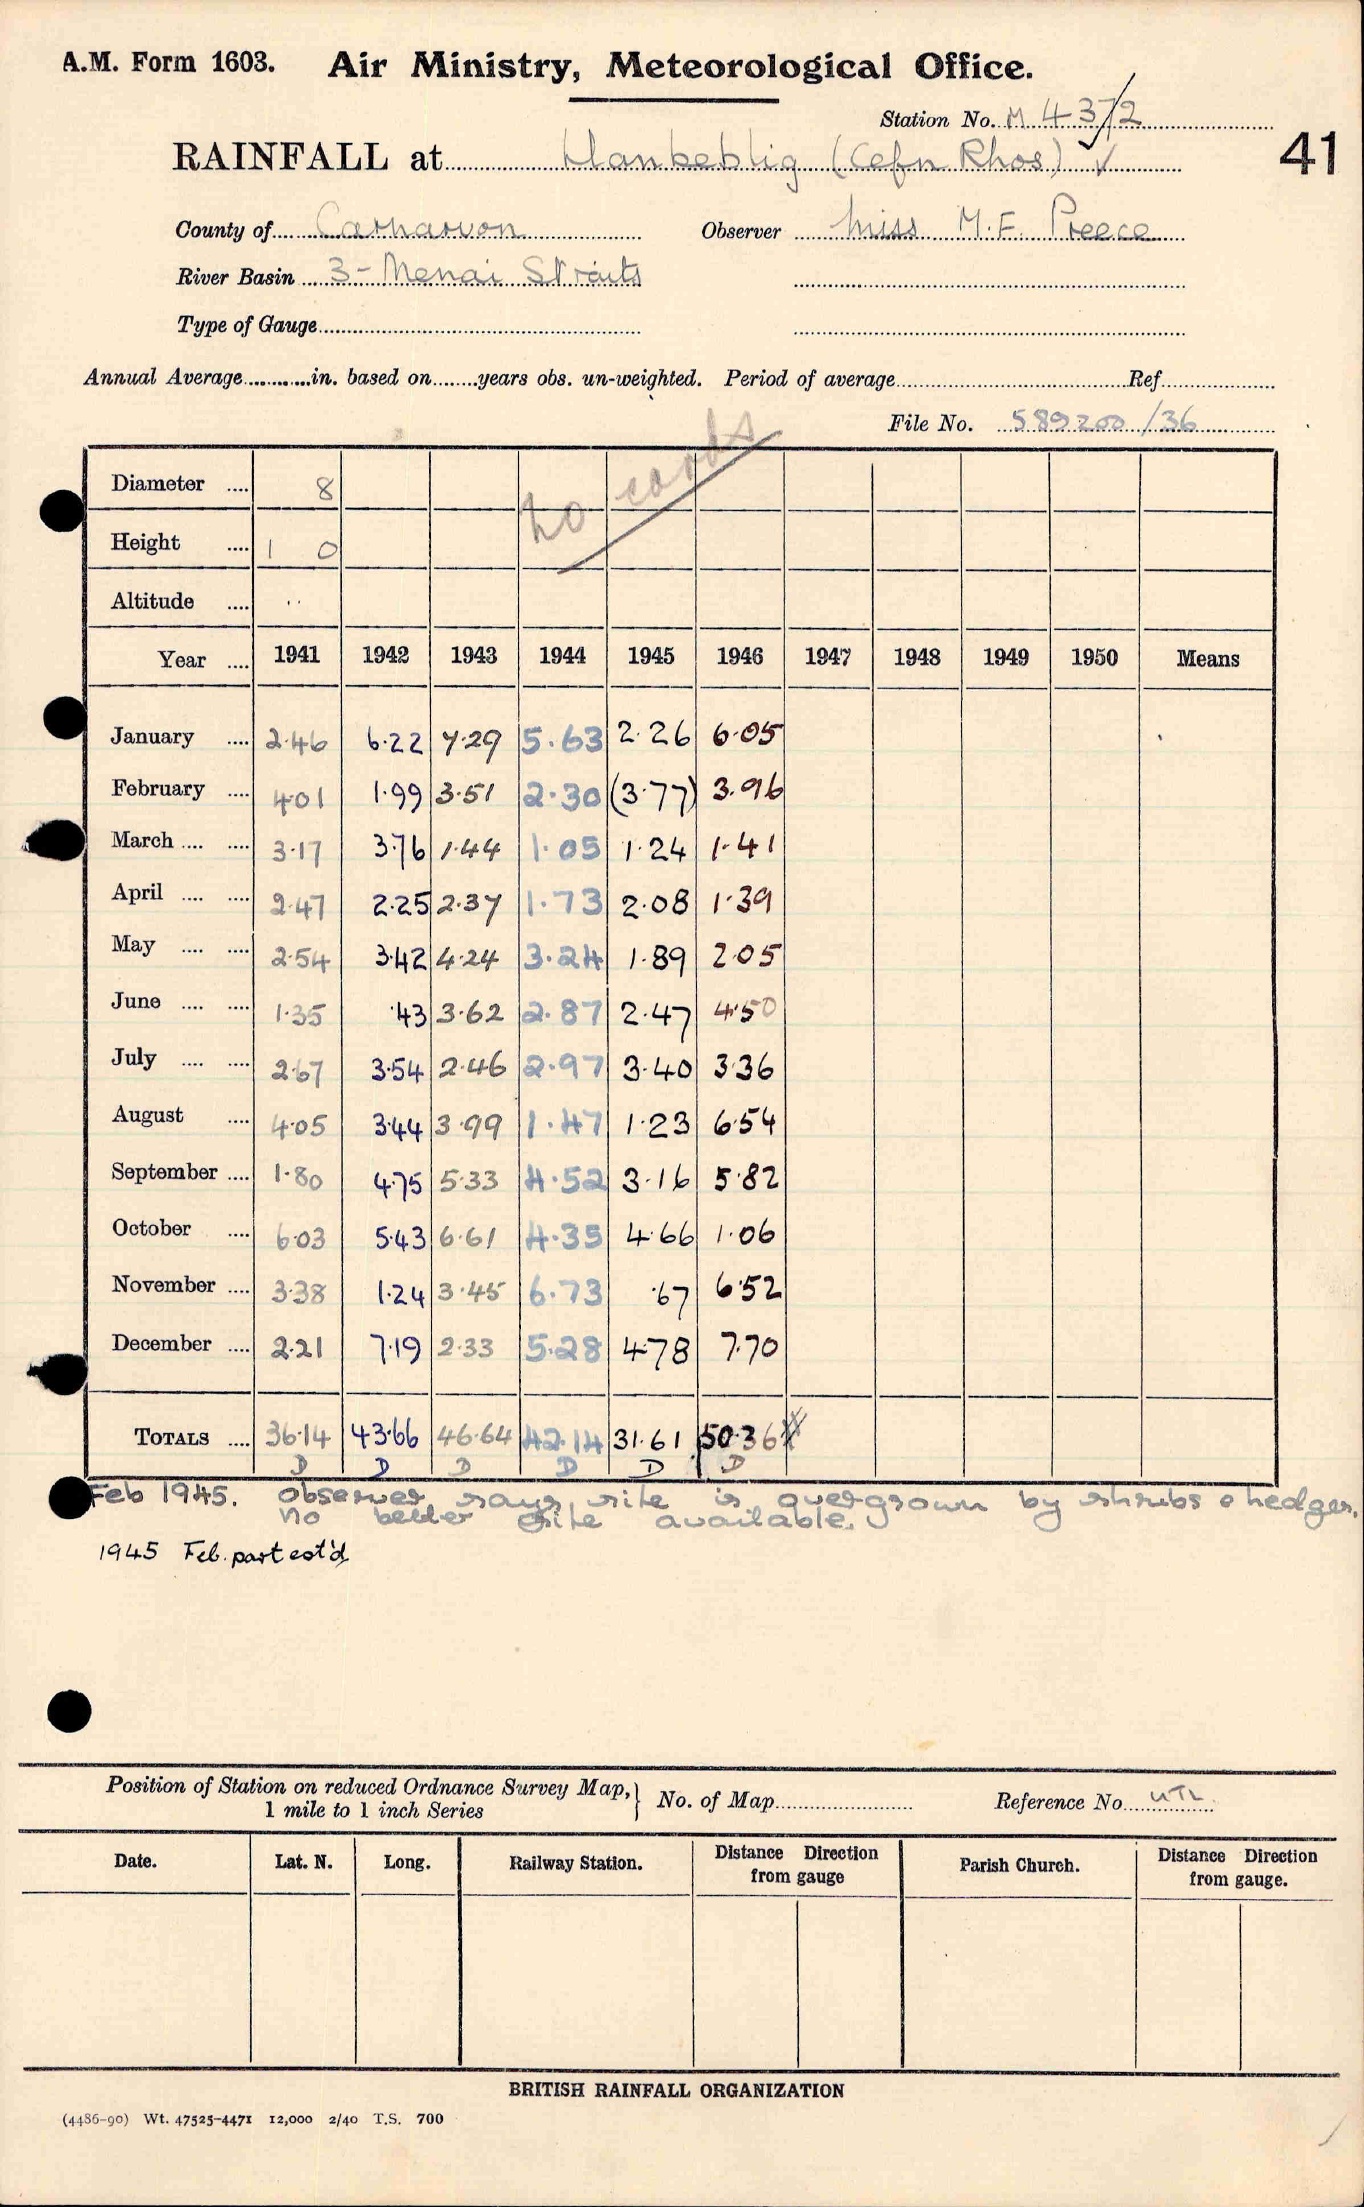 A.M. Form 1603. Air Ministry, Meteorological Office.
Station No. M 437/2
RAINFALL at Llanbeblig (Cefn Rhos) ✓ 41
County of Carnarvon Observer Miss M.F. Preece
River Basin 3 - Menai Straits
Type of Gauge
Annual Average in. based on years obs. un-weighted. Period of average Ref
File No. 589200/36
no cards
Diameter .... 8
Height .... 1 0
Altitude .... ..
Year .... 1941 1942 1943 1944 1945 1946 1947 1948 1949 1950 Means
January .... 2.46 6.22 7.29 5.63 2.26 6.05
February .... 4.01 1.99 3.51 2.30 (3.77) 3.96
March .... .... 3.17 3.76 1.44 1.05 1.24 1.41
April .... .... 2.47 2.25 2.37 1.73 2.08 1.39
May .... .... 2.54 3.42 4.24 3.24 1.89 2.05
June .... .... 1.35 .43 3.62 2.87 2.47 4.50
July .... .... 2.67 3.54 2.46 2.97 3.40 3.36
August .... 4.05 3.44 3.99 1.47 1.23 6.54
September .... 1.80 4.75 5.33 4.52 3.16 5.82
October .... 6.03 5.43 6.61 4.35 4.66 1.06
November .... 3.38 1.24 3.45 6.73 .67 6.52
December .... 2.21 7.19 2.33 5.28 4.78 7.70
TOTALS .... 36.14 43.66 46.64 42.14 31.61 50.36
D D D D D D
Feb 1945. Observer says site is overgrown by shrubs & hedges.
No better site available.
1945 Feb. part est'd
Position of Station on reduced Ordnance Survey Map, } No. of Map Reference No
1 mile to 1 inch Series
Date. Lat. N. Long. Railway Station. Distance Direction from gauge Parish Church. Distance Direction from gauge.
BRITISH RAINFALL ORGANIZATION
(4486-90) Wt. 47525-4471 12,000 2/40 T.S. 700